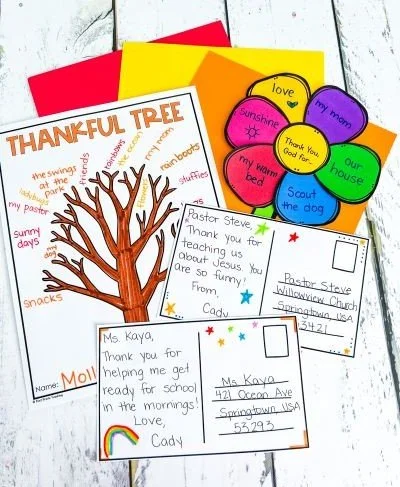 THANKFUL TREE
the swings
at the
park
friends
rainbows
the ocean
my mom
rainboots
stuffies
flowers
ladybugs
my pastor
sunny
days
my
dog
snacks
Name: Moll
love
my mom
our
house
Scout
the dog
my warm
bed
sunshine
Thank You,
God for...
Pastor Steve,
Thank you for
teaching us
about Jesus. You
are so funny!
From,
Cady
Pastor Steve
Willowview Church
Springtown, USA
53421
Ms. Kaya,
Thank you for
helping me get
ready for school
in the mornings!
Love,
Cady
Ms. Kaya
421 Ocean Ave
Springtown, USA
53293